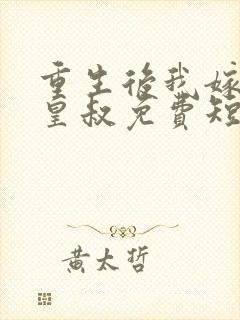 重生后我嫁
皇叔免費短
黄太哲